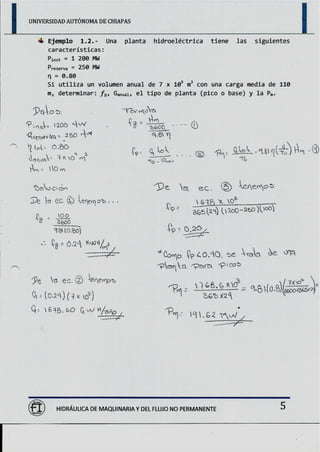 UNIVERSIDAD AUTÓNOMA DE CHIAPAS
Ejemplo 1.2.- Una planta hidroeléctrica tiene las siguientes
características:
Pinst = 1 200 MW
Preserva = 250 MW
η = 0.80
Si utiliza un volumen anual de 7 x 10⁹ m³ con una carga media de 110
m, determinar: fg, Ganual, el tipo de planta (pico o base) y la Pm.
Datos:
Pinst= 1200 MW
Preserva = 250 MW
η tot= 0.80
Vanual= 7x10⁹ m³
Hm= 110 m
Fórmula
fg = Hm / 3600 / 9.81 η ---- ①
Solución
De la ec ① tenemos...
fg = 110 / 3600 / 9.81 (0.80)
∴ fg = 0.24 KW H/m³
De la ec. ② tenemos
G = (0.24) (7 x 10⁹)
G = 1678.60 GW H/año
De la ec. ③ tenemos
fp = 1678 x 10⁶ / 365(24) (1200-250)(100)
fp = 0.20
*Como fp<0.40, se trata de una
planta para picos
Pm = 191.62 MW
HIDRÁULICA DE MAQUINARIA Y DEL FLUJO NO PERMANENTE
5